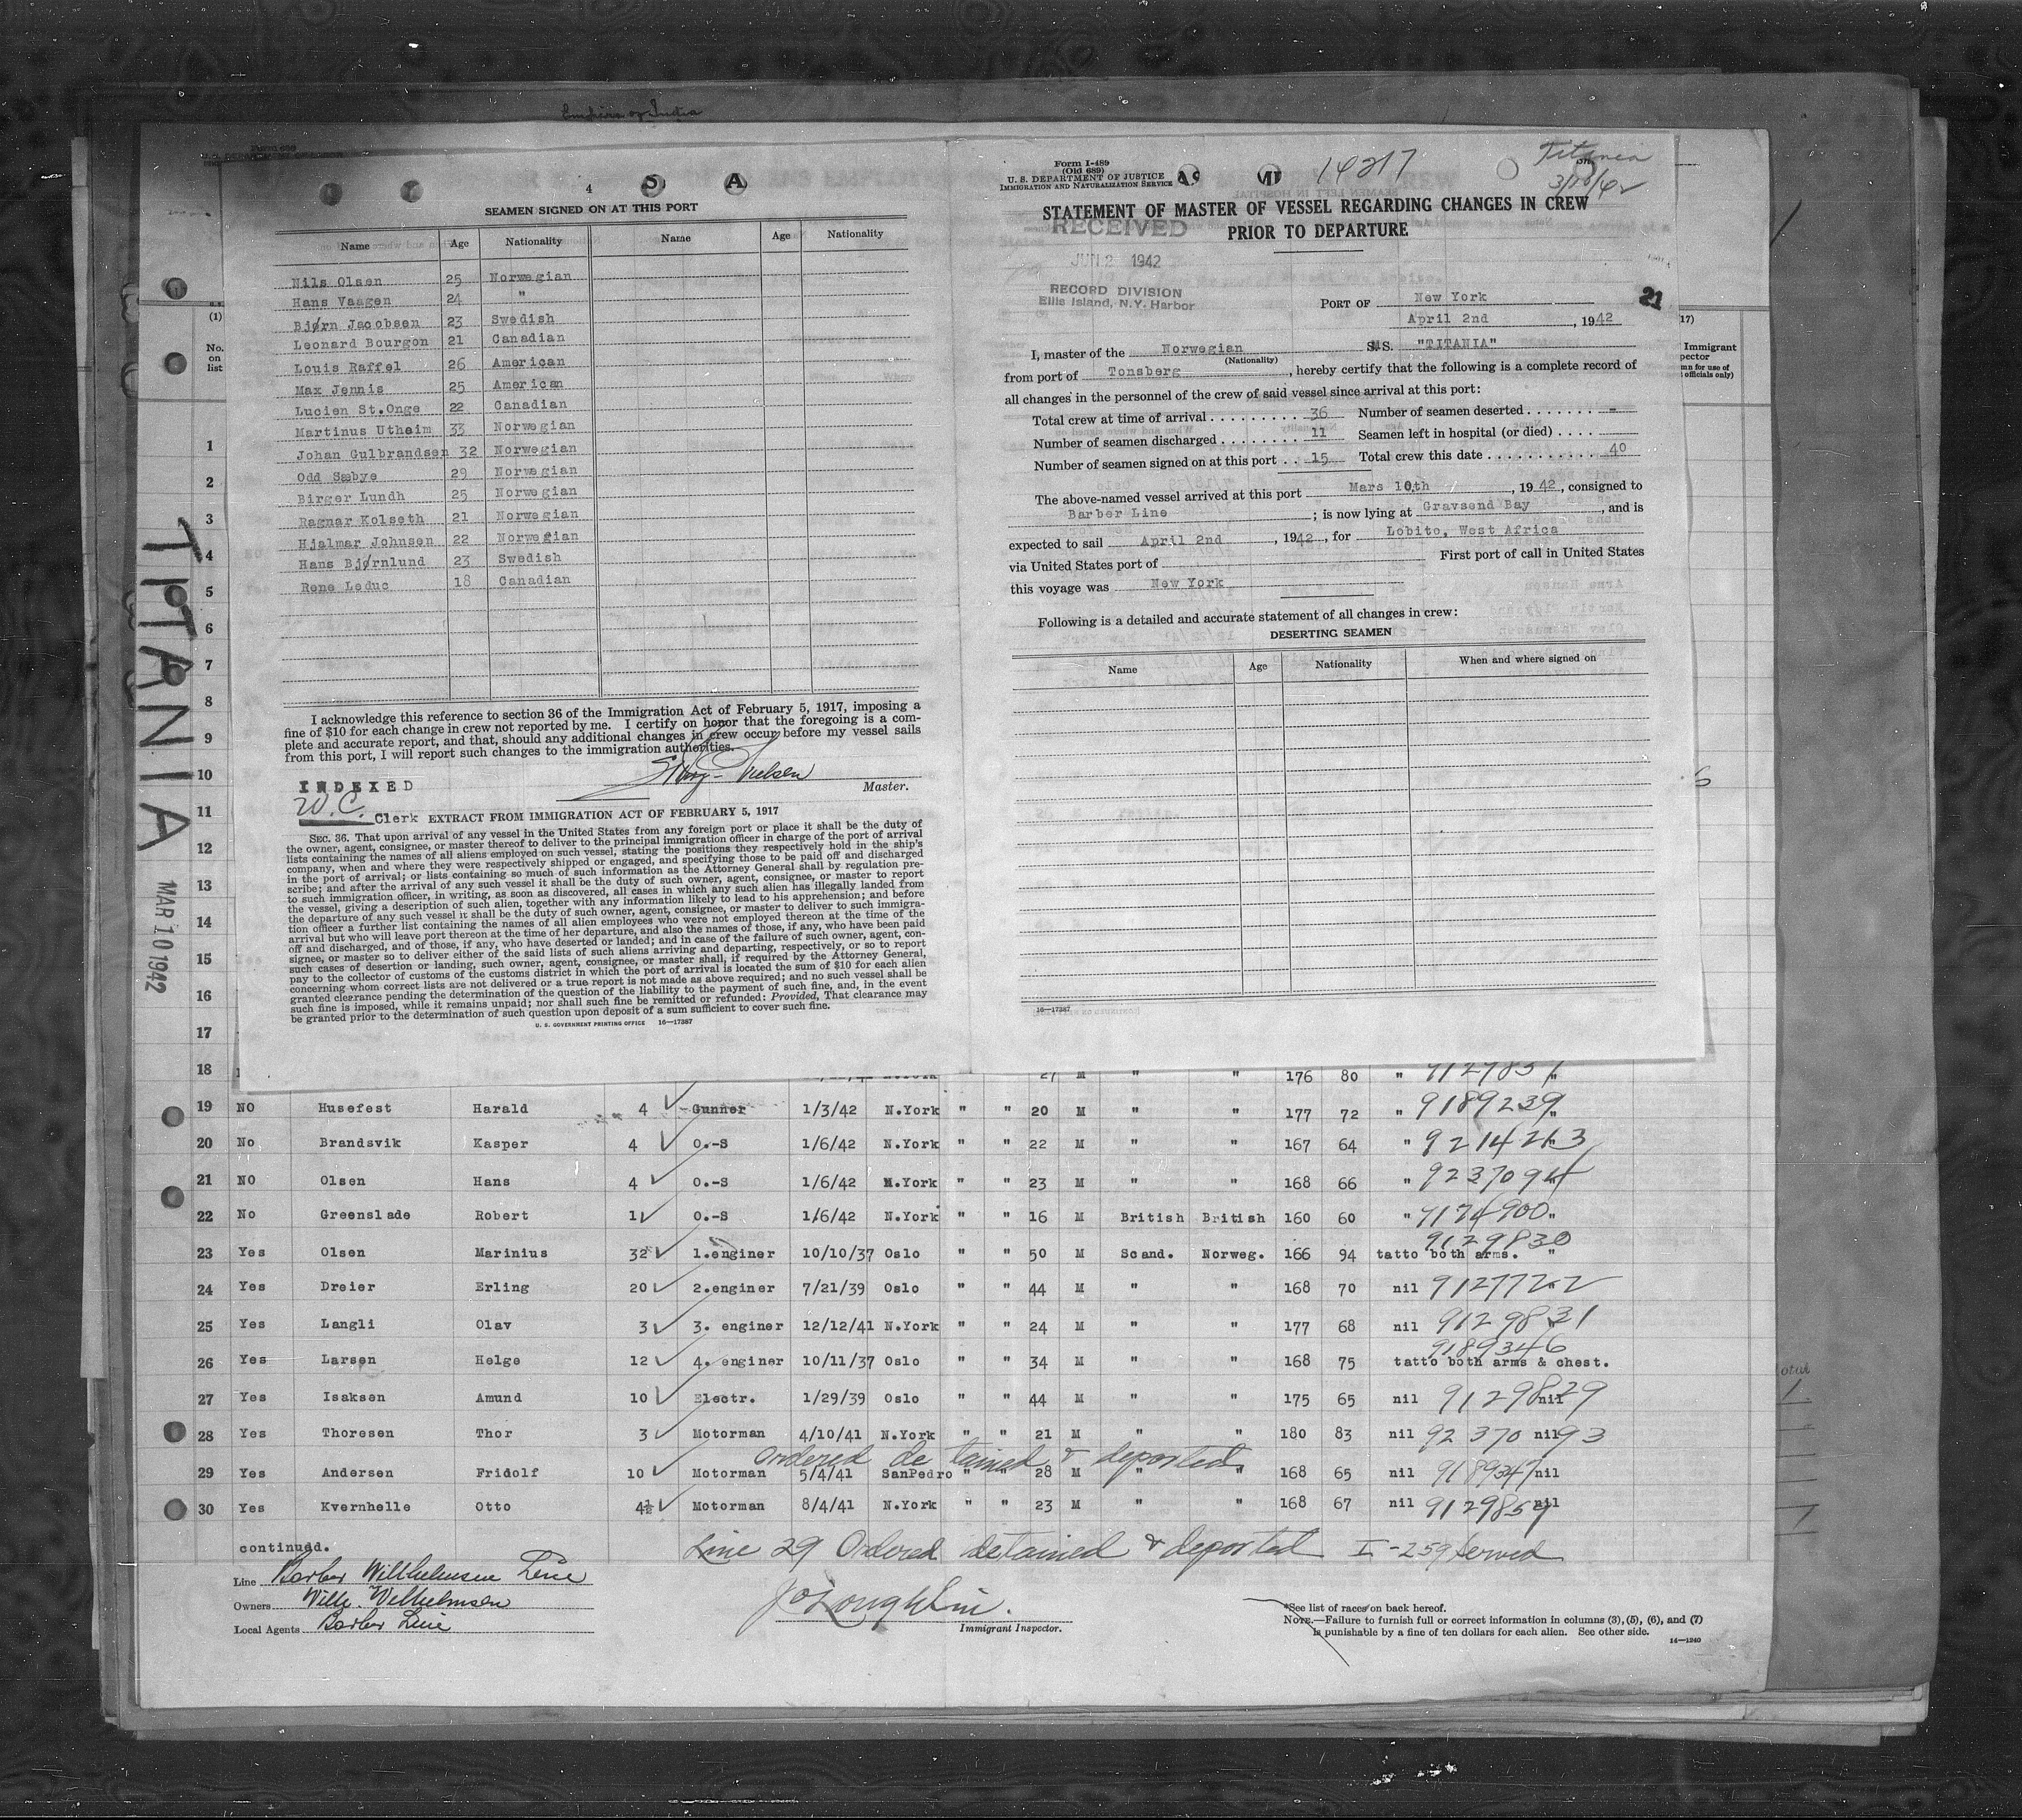 Form 689
4 5 A
SEAMEN SIGNED ON AT THIS PORT
Name Age Nationality Name Age Nationality
Nils Olsen 25 Norwegian
Hans Vaagen 24 "
Bjørn Jacobsen 23 Swedish
Leonard Bourgon 21 Canadian
Louis Raffel 26 American
Max Jennis 25 American
Lucien St.Onge 22 Canadian
Martinus Utheim 33 Norwegian
Johan Gulbrandsen 32 Norwegian
Odd Sæbye 29 Norwegian
Birger Lundh 25 Norwegian
Ragnar Kolseth 21 Norwegian
Hjalmar Johnsen 22 Norwegian
Hans Bjørnlund 23 Swedish
Rene Leduc 18 Canadian
I acknowledge this reference to section 36 of the Immigration Act of February 5, 1917, imposing a
fine of $10 for each change in crew not reported by me. I certify on honor that the foregoing is a com-
plete and accurate report, and that, should any additional changes in crew occur before my vessel sails
from this port, I will report such changes to the immigration authorities.
Nielsen
INDEXED
Master.
W.C. Clerk EXTRACT FROM IMMIGRATION ACT OF FEBRUARY 5, 1917
SEC. 36. That upon arrival of any vessel in the United States from any foreign port or place it shall be the duty of
the owner, agent, consignee, or master thereof to deliver to the principal immigration officer in charge of the port of arrival
lists containing the names of all aliens employed on such vessel, stating the positions they respectively hold in the ship's
company, when and where they were respectively shipped or engaged, and specifying those to be paid off and discharged
in the port of arrival; or lists containing so much of such information as the Attorney General shall by regulation pre-
scribe; and after the arrival of any such vessel it shall be the duty of such owner, agent, consignee, or master to report
to such immigration officer, in writing, as soon as discovered, all cases in which any such alien has illegally landed from
the vessel, giving a description of such alien, together with any information likely to lead to his apprehension; and before
the departure of any such vessel it shall be the duty of such owner, agent, consignee, or master to deliver to such immigra-
tion officer a further list containing the names of all alien employees who were not employed thereon at the time of the
arrival but who will leave port thereon at the time of her departure, and also the names of those, if any, who have been paid
off and discharged, and of those, if any, who have deserted or landed; and in case of the failure of such owner, agent, con-
signee, or master so to deliver either of the said lists of such aliens arriving and departing, respectively, or so to report
such cases of desertion or landing, such owner, agent, consignee, or master shall, if required by the Attorney General,
pay to the collector of customs of the customs district in which the port of arrival is located the sum of $10 for each alien
concerning whom correct lists are not delivered or a true report is not made as above required; and no such vessel shall be
granted clearance pending the determination of the question of the liability to the payment of such fine, and, in the event
such fine is imposed, while it remains unpaid; nor shall such fine be remitted or refunded: Provided, That clearance may
be granted prior to the determination of such question upon deposit of a sum sufficient to cover such fine.
U. S. GOVERNMENT PRINTING OFFICE 16—17387
Form I-489
(Old 689)
U. S. DEPARTMENT OF JUSTICE
IMMIGRATION AND NATURALIZATION SERVICE
14217
Titania
3/10/42
STATEMENT OF MASTER OF VESSEL REGARDING CHANGES IN CREW
PRIOR TO DEPARTURE
RECEIVED
JUN 2 1942
RECORD DIVISION
Ellis Island, N.Y. Harbor
21
PORT OF New York
April 2nd, 1942
I, master of the Norwegian S.S. "TITANIA"
(Nationality)
from port of Tonsberg, hereby certify that the following is a complete record of
all changes in the personnel of the crew of said vessel since arrival at this port:
Total crew at time of arrival 36 Number of seamen deserted -
Number of seamen discharged 11 Seamen left in hospital (or died)
Number of seamen signed on at this port 15 Total crew this date 40
The above-named vessel arrived at this port Mars 10th, 1942, consigned to
Barber Line; is now lying at Gravsend Bay, and is
expected to sail April 2nd, 1942, for Lobito, West Africa
via United States port of First port of call in United States
this voyage was New York
Following is a detailed and accurate statement of all changes in crew:
DESERTING SEAMEN
Name Age Nationality When and where signed on
16—17387
TITANIA
MAR 10 1942
(1)
No.
on
list
1
2
3
4
5
6
7
8
9
10
11
12
13
14
15
16
17
18 27 M " " 176 80 "
19 NO Husefest Harald 4 Gunner 1/3/42 N.York " " 20 M " " 177 72 " 9189239
20 No Brandsvik Kasper 4 O.-S 1/6/42 N.York " " 22 M " " 167 64 " 9214213
21 NO Olsen Hans 4 O.-S 1/6/42 N.York " " 23 M " " 168 66 " 9237094
22 No Greenslade Robert 1 O.-S 1/6/42 N.York " " 16 M British British 160 60 " 7174900
23 Yes Olsen Marinius 32 1.enginer 10/10/37 Oslo " " 50 M Scand. Norweg. 166 94 tatto both arms. " 9129830
24 Yes Dreier Erling 20 2.enginer 7/21/39 Oslo " " 44 M " " 168 70 nil 9127722
25 Yes Langli Olav 3 3. enginer 12/12/41 N.York " " 24 M " " 177 68 nil 9129831
26 Yes Larsen Helge 12 4. enginer 10/11/37 Oslo " " 34 M " " 168 75 tatto both arms & chest. 9189346
27 Yes Isaksen Amund 10 Electr. 1/29/39 Oslo " " 44 M " " 175 65 nil 9129829 nil
28 Yes Thoresen Thor 3 Motorman 4/10/41 N.York " " 21 M " " 180 83 nil 9237093 nil
ordered detained & deported
29 Yes Andersen Fridolf 10 Motorman 5/4/41 SanPedro " " 28 M " " 168 65 nil 9189347 nil
30 Yes Kvernhelle Otto 4½ Motorman 8/4/41 N.York " " 23 M " " 168 67 nil 9129859 nil
continued.
Line 29 Ordered detained & deported I-259 served
Line Barber Wilhelmsen Line
Owners Wilh. Wilhelmsen
Local Agents Barber Line
J O'Loughlin.
Immigrant Inspector.
*See list of races on back hereof.
NOTE.—Failure to furnish full or correct information in columns (3), (5), (6), and (7)
is punishable by a fine of ten dollars for each alien. See other side.
14—1240